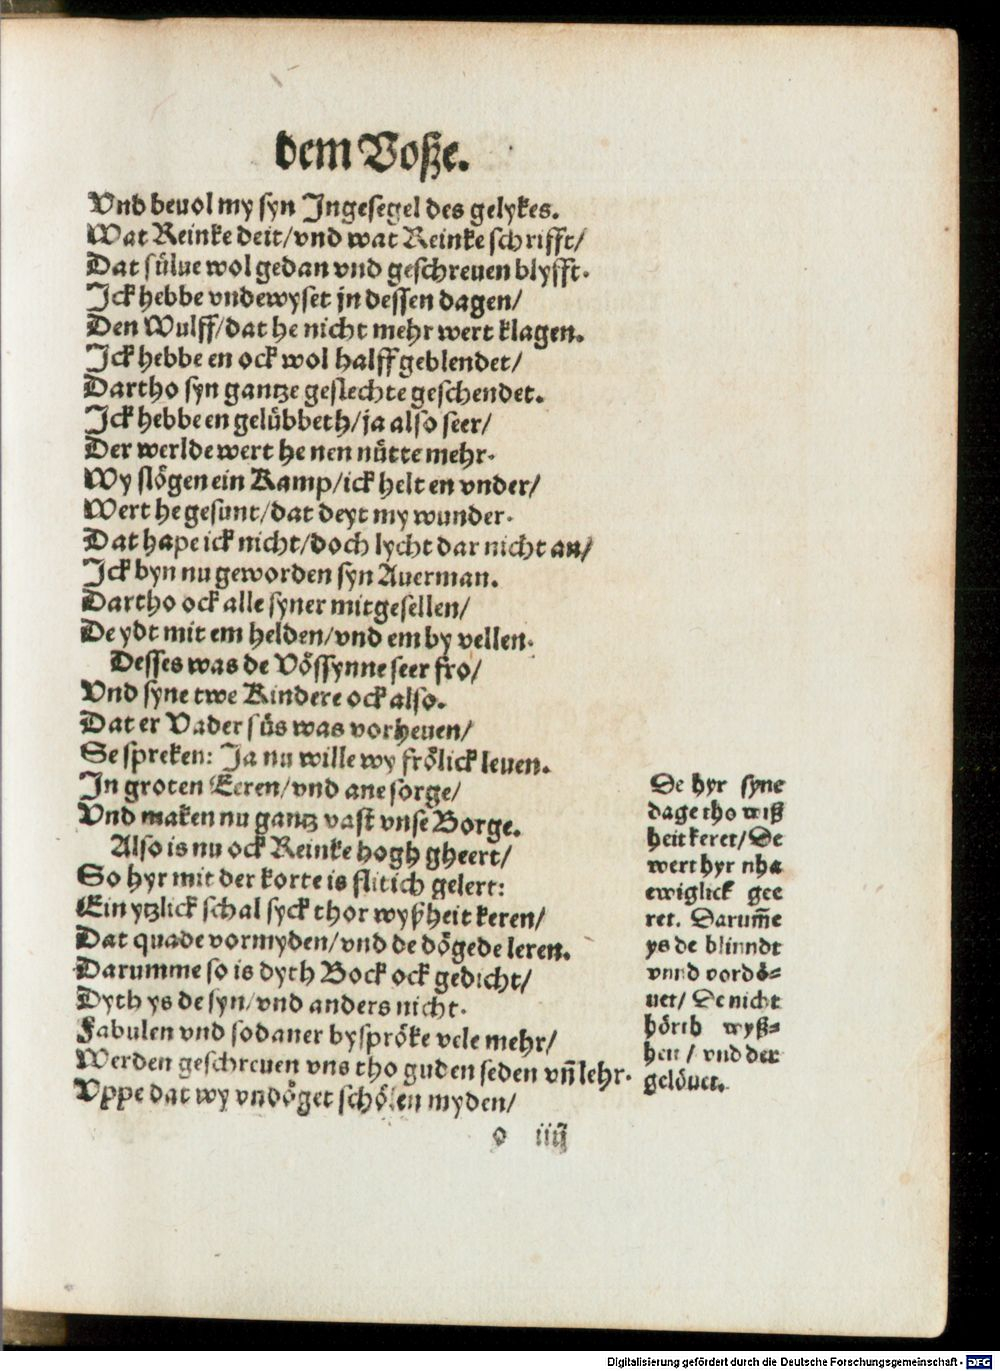 dem Voßze.
Vnd beuol my syn Ingesegel des gelykes.
Wat Reinke deit/vnd wat Reinke schrifft/
Dat sülue wol gedan vnd geschreuen blyfft.
Ick hebbe vndewyset jn dessen dagen/
Den Wulff/dat he nicht mehr wert klagen.
Ick hebbe en ock wol halff geblendet/
Dartho syn gantze geslechte geschendet.
Ick hebbe en gelübbeth/ja also seer/
Der werlde wert he nen nütte mehr.
Wy slögen ein Kamp/ick helt en vnder/
Wert he gesunt/dat deyt my wunder.
Dat hape ick nicht/doch lycht dar nicht an/
Ick byn nu geworden syn Auerman.
Dartho ock alle syner mitgesellen/
De ydt mit em helden/vnd em by vellen.
Desses was de Vössynne seer fro/
Vnd syne twe Kindere ock also.
Dat er Vader süs was vorheuen/
Se spreken: Ja nu wille wy frölick leuen.
In groten Eeren/vnd ane sorge/
Vnd maken nu gantz vast vnse Borge.
Also is nu ock Reinke hogh gheert/
So hyr mit der korte is flitich gelert:
Ein ytzlick schal syck thor wyßheit keren/
Dat quade vormyden/vnd de dögede leren.
Darumme so is dyth Bock ock gedicht/
Dyth ys de syn/vnd anders nicht.
Fabulen vnd sodaner byspröke vele mehr/
Werden geschreuen vns tho guden seden vn̄ lehr.
Vppe dat wy vndöget schölen myden/
De hyr syne
dage tho wiß
heit keret/De
wert hyr nha
ewiglick gee
ret. Darum̄e
ys de blinndt
vnnd vordö=
uet/ De nicht
hörth wyß=
heit / vnd der
gelöuet.
o iiij
Digitalisierung gefördert durch die Deutsche Forschungsgemeinschaft - DFG